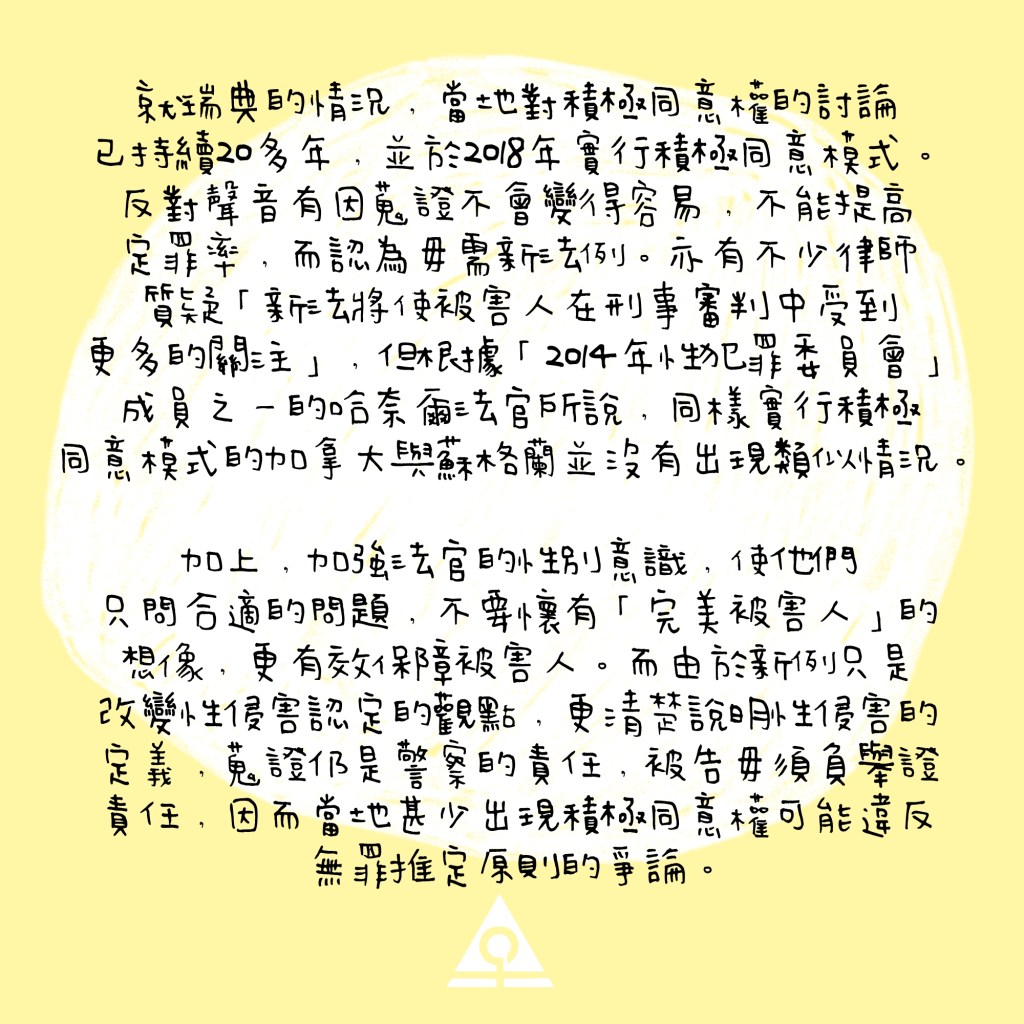 就瑞典的情況，當地對積極同意權的討論
已持續20多年，並於2018年實行積極同意模式。
反對聲音有因蒐證不會變得容易，不能提高
定罪率，而認為毋需新法例。亦有不少律師
質疑「新法將使被害人在刑事審判中受到
更多的關注」，但根據「2014年性犯罪委員會」
成員之一的哈奈爾法官所說，同樣實行積極
同意模式的加拿大與蘇格蘭並沒有出現類似情況。
加上，加強法官的性別意識，使他們
只問合適的問題，不要懷有「完美被害人」的
想像，更有效保障被害人。而由於新例只是
改變性侵害認定的觀點，更清楚說明性侵害的
定義，蒐證仍是警察的責任，被告毋須負舉證
責任，因而當地甚少出現積極同意權可能違反
無罪推定原則的爭論。